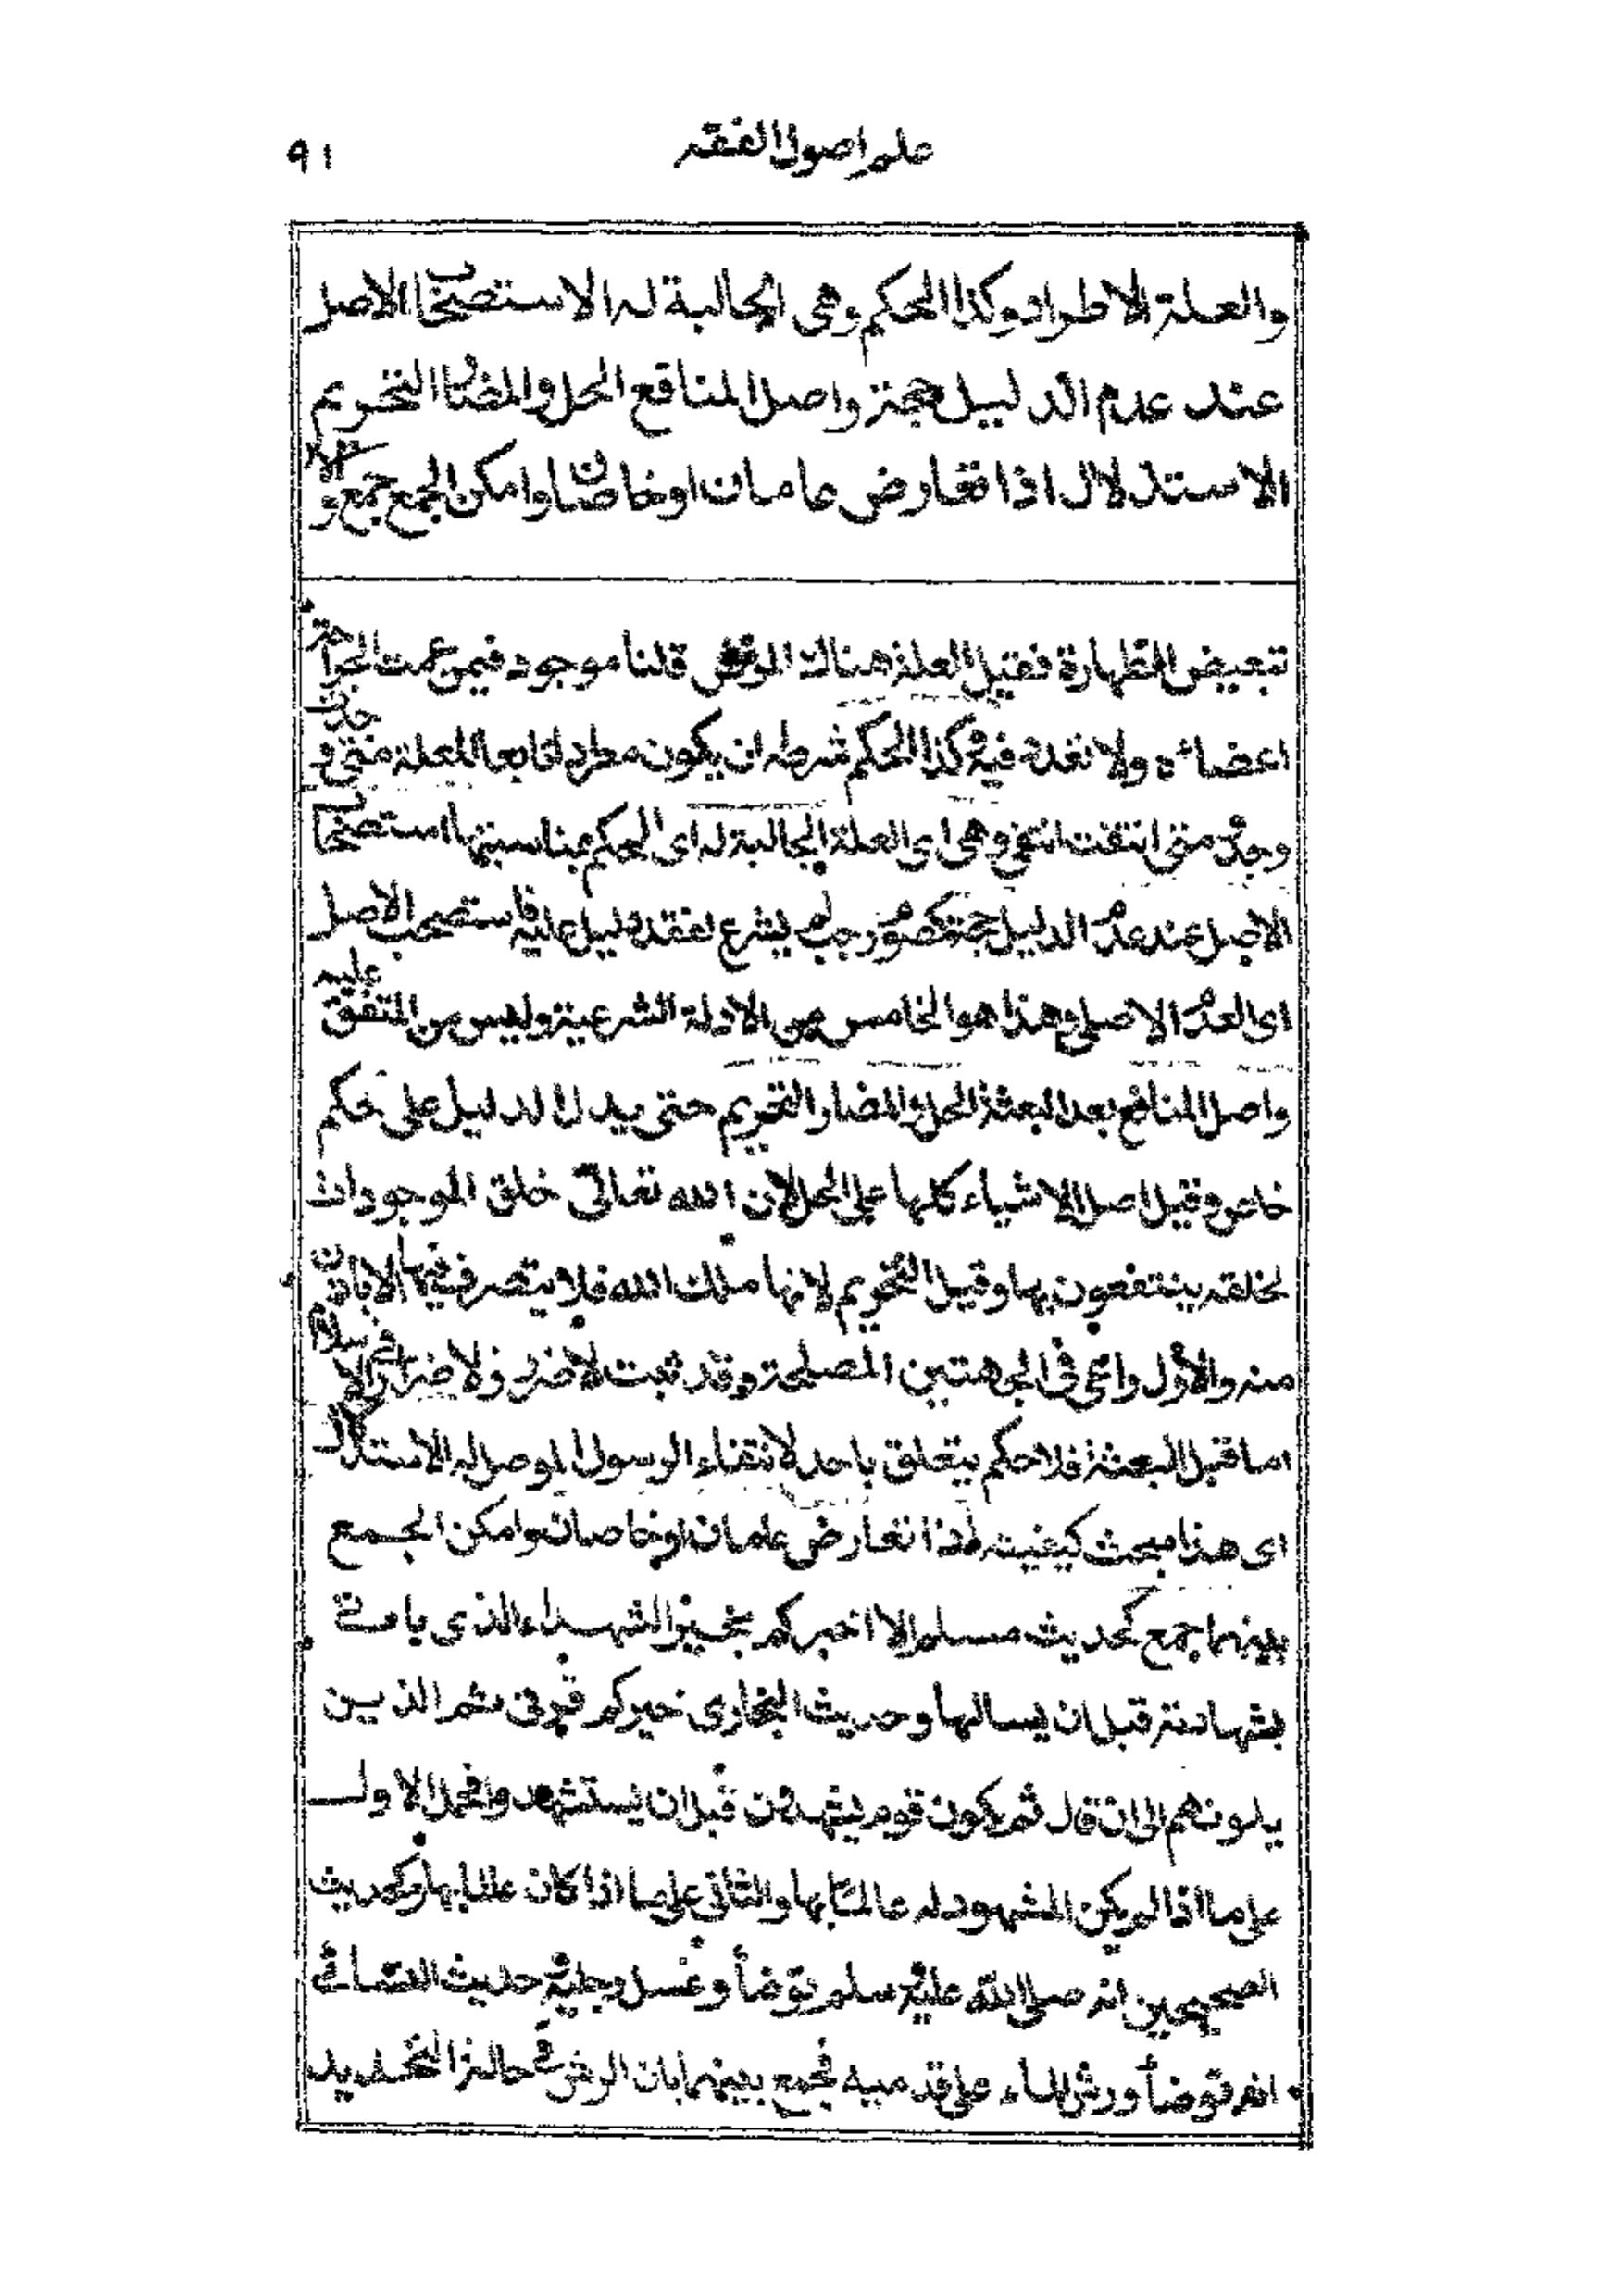 علم اصول الفقه
٩١
والعلة الاطراد وكذا الحكم وهى الجالبة له الاستصحاب الاصل
عند عدم الدليل حجة واصل المنافع الحل والمضار التحريم
الاستدلال اذا تعارض عامان او خاصان وامكن الجمع جمع والا
تبعيض الطهارة فقيل العلة هناك قلنا موجود فيمن عمت الجراحة
اعضاءه ولا تعدد فيه وكذا الحكم شرطه ان يكون مطردا تابعا للعلة متى وجدت
وجد ومتى انتفت انتفى وهى اى العلة الجالبة له اى الحكم بمناسبتها استصحاب
الاصل عند عدم الدليل حجة كصوم رجب لم يشرع لفقد دليل عليه فاستصحب الاصل
اى العدم الاصلى وهذا هو الخامس من الادلة الشرعية وليس من المتفق عليه
واصل المنافع بعد البعثة الحل والمضار التحريم حتى يدل الدليل على حكم
خاص وقيل اصل الاشياء كلها على الحل لان الله تعالى خلق الموجودات
لخلقه ينتفعون بها وقيل التحريم لانها ملك الله فلا يتصرف فيها الا باذن
منه والاول راعى فى الجهتين المصلحة وقد ثبت لا ضرر ولا ضرار فى الاسلام
اما قبل البعثة فلا حكم يتعلق باحد لانتفاء الرسول الموصل له الاستدلال
اى هذا مبحث كيفيته اذا تعارض عامان او خاصان وامكن الجمع
بينهما جمع كحديث مسلم الا اخبركم بخير الشهداء الذى ياتى
بشهادته قبل ان يسالها وحديث البخارى خيركم قرنى ثم الذين
يلونهم الى ان قال ثم يكون قوم يشهدون قبل ان يستشهدوا فحمل الاول
على ما اذا لم يكن المشهود له عالما بها والثانى على ما اذا كان عالما بها وكحديث
الصحيحين انه صلى الله عليه وسلم توضأ وغسل رجليه وحديث النسائى
انه توضأ ورش الماء على قدميه فجمع بينهما بان الرش فى حالة التجديد